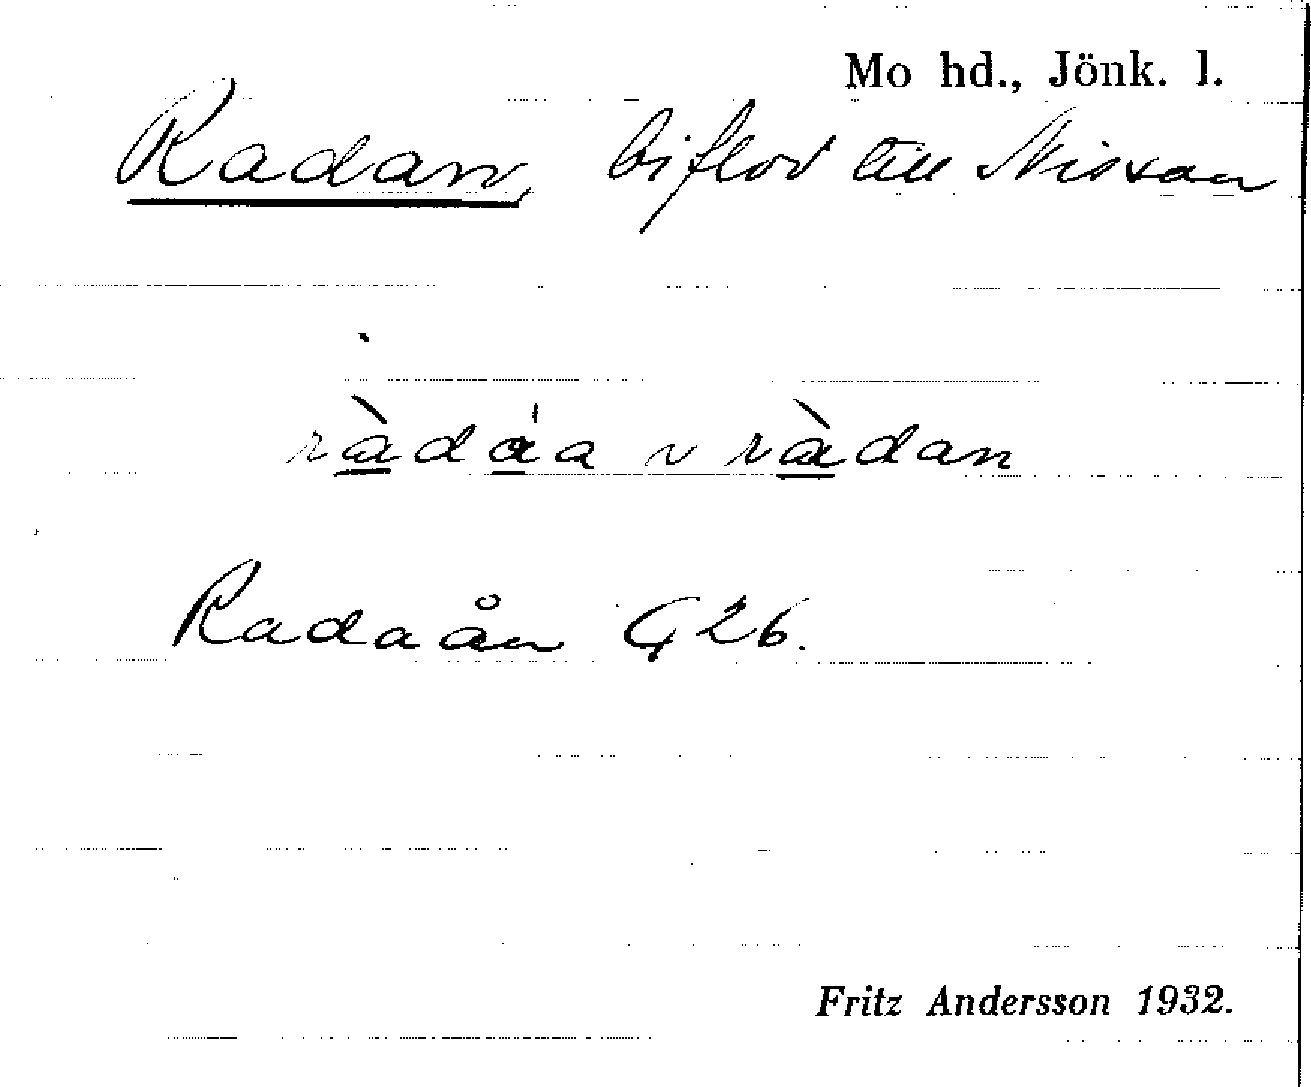 Mo hd., Jönk. l.
Radan, biflod till Nissan
ràdáa ~ ràdan
Radaån G 26.
Fritz Andersson 1932.